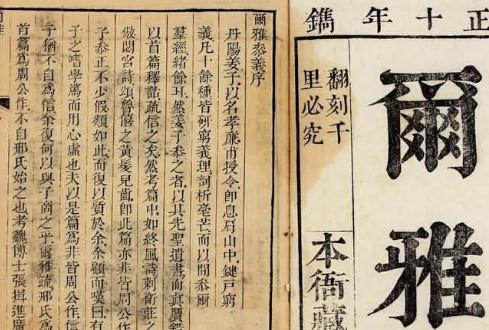 正十年鐫
爾雅
翻刻千
里必究
本衙藏
爾雅叅義序
丹陽姜子以名孝廉甫授令即息石山中鍵戸窮
義凡十餘種皆研窮義理剖析毫芒而以間叅爾
羣經緒餘耳然姜子叅之者以其先聖遺書而眞贋
以首篇釋詁疏信之矣然考篇中如終風詩刺衛莊之
倣閟宮詩頌魯僖之黃髮兒齒即此篇亦非皆周公作
子叅正不少假類如此而復以質於余余顧而嘆曰有
子之嗜學篤而用心虛也夫以是篇爲非皆周公作信
子猶不自爲信余復何以與子商之乎爾雅疏邢氏爲
首篇爲周公作不自邢氏始之也考魏博士張揖進廣